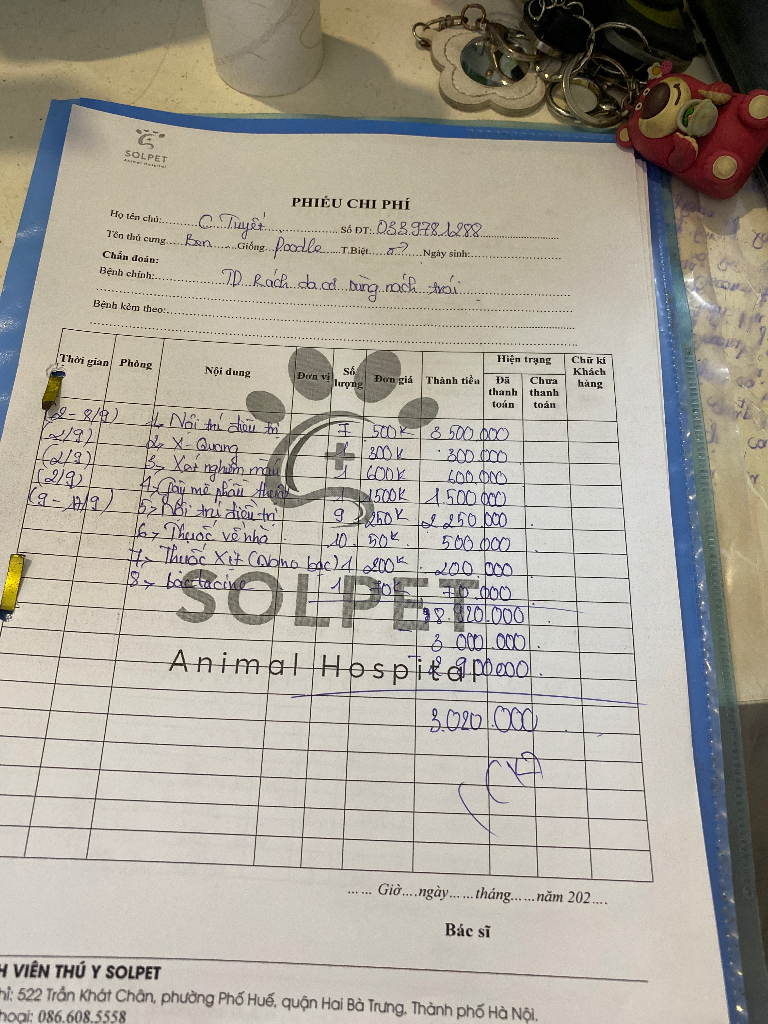 SOLPET
Animal Hospital
PHIẾU CHI PHÍ
Họ tên chủ: C Tuyết Số ĐT: 0339781288
Tên thú cưng Ben Giống Poodle T.Biệt ♂? Ngày sinh:
Chẩn đoán:
Bệnh chính: TD Rách da cơ vùng nách trái
Bệnh kèm theo:
Thời gian Phòng Nội dung Đơn vị Số lượng Đơn giá Thành tiền Hiện trạng Đã thanh toán Chưa thanh toán Chữ kí Khách hàng
(2-8/9) 1, Nội trú điều trị 7 500K 3 500.000
(2/9) 2, X-Quang 1 300K 300.000
(2/9) 3, Xét nghiệm máu 1 600K 600.000
(2/9) 4, Gây mê phẫu thuật 1 1500K 1 500 000
(9-17/9) 5, Nội trú điều trị 9 250K 2 250 000
6, Thuốc về nhà 10 50K 500 000
7, Thuốc Xịt (Nano bạc) 1 200K 200.000
8, bactacine 1 70K 70.000
SOLPET
8 920.000
3 000.000
Animal Hospital
3.020.000
...... Giờ....ngày......tháng......năm 202....
Bác sĩ
H VIÊN THÚ Y SOLPET
hỉ: 522 Trần Khát Chân, phường Phố Huế, quận Hai Bà Trưng, Thành phố Hà Nội.
hoại: 086.608.5558